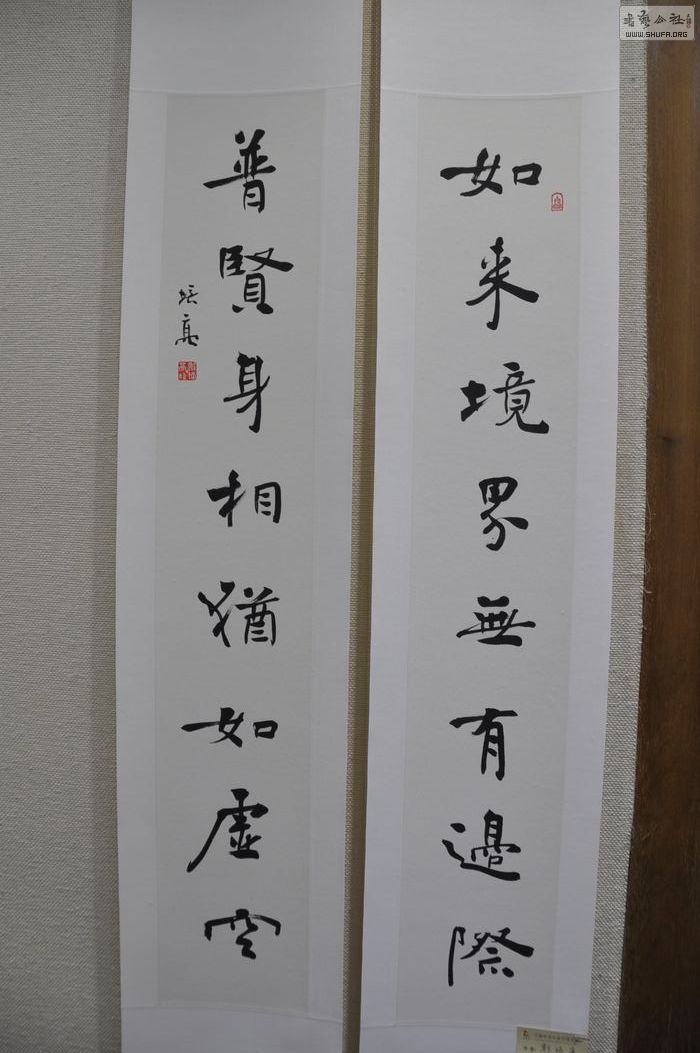 如来境界無有邊際
普賢身相猶如虛空
培高
書藝公社
WWW.SHUFA.ORG